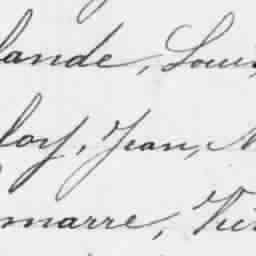 lande, Louis
loy, Jean, M
marre, Vic